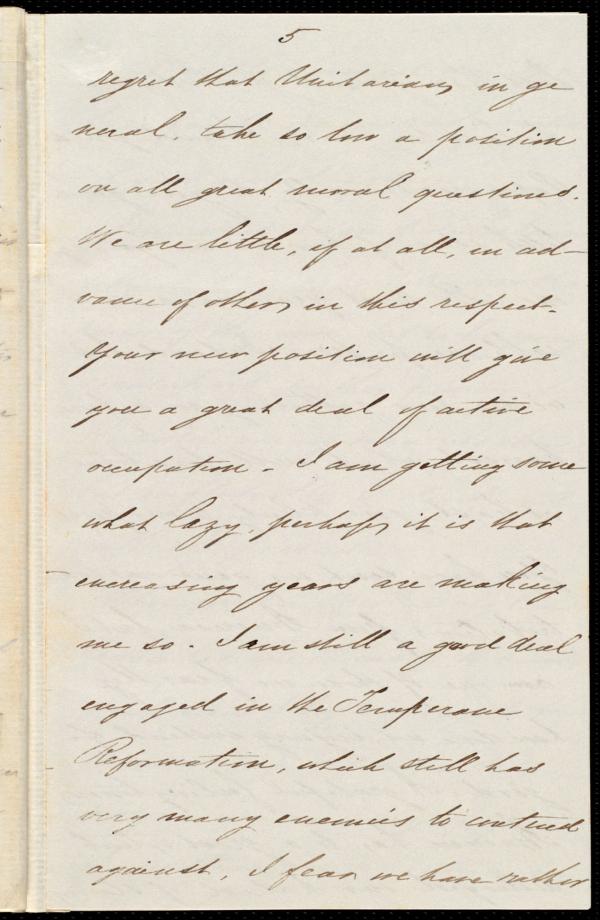 5
regret that Unitarians in ge
neral, take so low a position
on all great moral questions.
We are little, if at all, in ad-
vance of others in this respect.
Your new position will give
you a great deal of active
occupation. I am getting some
what lazy, perhaps it is that
increasing years are making
me so. I am still a good deal
engaged in the Temperance
Reformation, which still has
very many enemies to contend
against, I fear we have rather